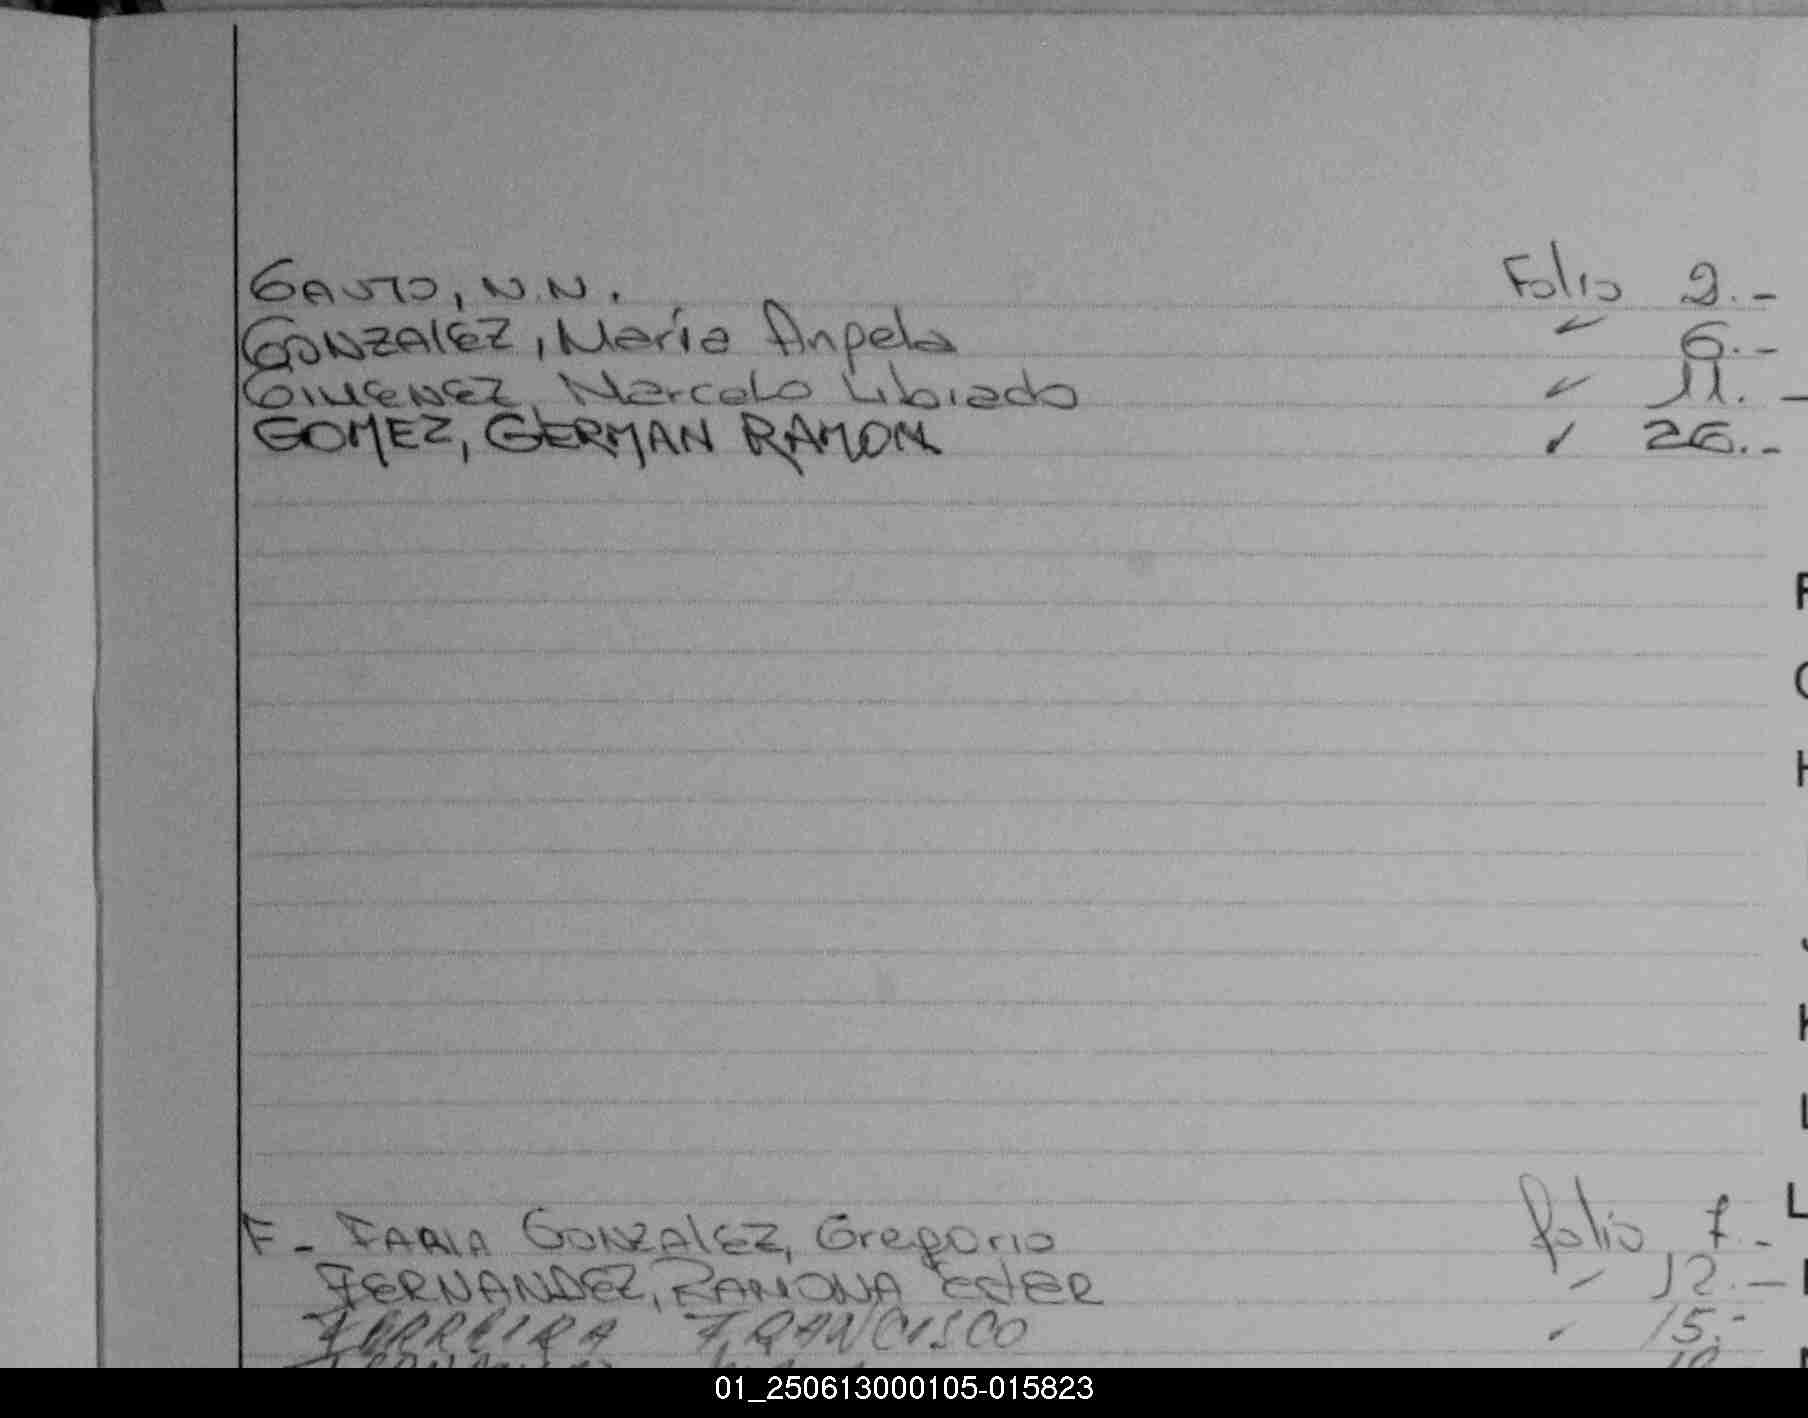 GAUTO, N.N. Folio 2.-
GONZALEZ, María Angela " 6.-
GIMENEZ, Marcelo Libiado " 11.-
GOMEZ, GERMAN RAMON " 26.-
F
H
J
K
L
L
F - FARIA GONZALEZ, Gregorio folio 7.-
FERNANDEZ, RAMONA ESTER " 12.-
FERREIRA FRANCISCO " 15.-
01_250613000105-015823